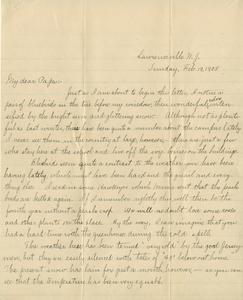 Lawrenceville N. J.
Sunday, Feb. 12, 1905
My dear Papa:-
Just as I am about to begin this letter I notice a
pair of bluebirds in the tree before my window, their wonderful color inten-
sified by the bright sun and glittering snow. Although not as plenti-
ful as last winter, there have been quite a number about the campus lately.
I never see them in the country at large, however. There are just a few
who stay here at the school and live off the ivy vines on the buildings.
Bluebirds seem quite a contrast to the weather you have been
having lately, which must have been hard on the quail and every-
thing else. I read in some clippings which Mama sent that the peach
buds are killed again. If I remember rightly this will then be the
fourth year without a peach crop. You will no doubt lose some roses
and other plants on the place. By the way, I can imagine that you
had a hard time with the greenhouse during the cold spell.
The weather here has been termed "very cold" by the good Jersey-
men, but they are easily silenced with tales of
The present snow has lain for just a month, however, so you can
see that the temperature has been very equable.